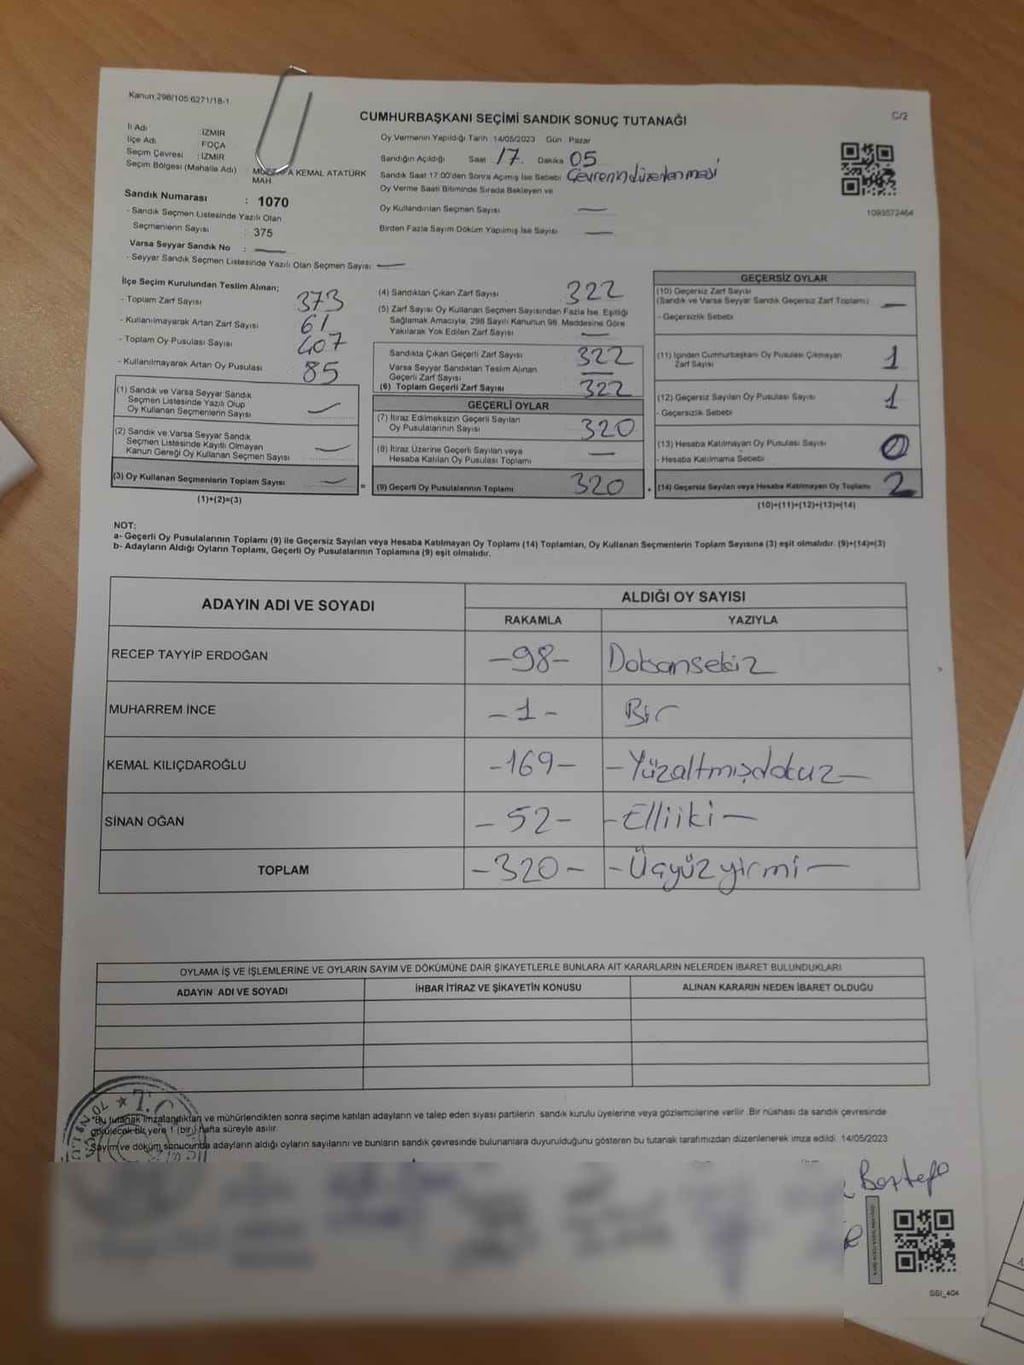 Kanun:298/105:6271/18-1
C/2
CUMHURBAŞKANI SEÇİMİ SANDIK SONUÇ TUTANAĞI
İl Adı : İZMİR
İlçe Adı : FOÇA
Seçim Çevresi : İZMİR
Seçim Bölgesi (Mahalle Adı) KEMAL ATATÜRK
MAH
Oy Vermenin Yapıldığı Tarih 14/05/2023 Gün Pazar
Sandığın Açıldığı Saat 17. Dakika 05
Sandık Saat 17:00'den Sonra Açılmış İse Sebebi Çevrenin düzenlenmesi
Oy Verme Saati Bitiminde Sırada Bekleyen ve
Oy Kullandırılan Seçmen Sayısı —
Birden Fazla Sayım Döküm Yapılmış İse Sayısı —
1093572464
Sandık Numarası : 1070
- Sandık Seçmen Listesinde Yazılı Olan
Seçmenlerin Sayısı : 375
Varsa Seyyar Sandık No : —
- Seyyar Sandık Seçmen Listesinde Yazılı Olan Seçmen Sayısı: —
İlçe Seçim Kurulundan Teslim Alınan;
- Toplam Zarf Sayısı 373
- Kullanılmayarak Artan Zarf Sayısı 61
- Toplam Oy Pusulası Sayısı 407
- Kullanılmayarak Artan Oy Pusulası 85
(1) Sandık ve Varsa Seyyar Sandık
Seçmen Listesinde Yazılı Olup
Oy Kullanan Seçmenlerin Sayısı —
(2) Sandık ve Varsa Seyyar Sandık
Seçmen Listesinde Kayıtlı Olmayan
Kanun Gereği Oy Kullanan Seçmen Sayısı —
(3) Oy Kullanan Seçmenlerin Toplam Sayısı —
(1)+(2)=(3)
(4) Sandıktan Çıkan Zarf Sayısı 322
(5) Zarf Sayısı Oy Kullanan Seçmen Sayısından Fazla İse, Eşitliği
Sağlamak Amacıyla, 298 Sayılı Kanunun 98. Maddesine Göre
Yakılarak Yok Edilen Zarf Sayısı —
Sandıkta Çıkan Geçerli Zarf Sayısı 322
Varsa Seyyar Sandıktan Teslim Alınan
Geçerli Zarf Sayısı —
(6) Toplam Geçerli Zarf Sayısı 322
GEÇERLİ OYLAR
(7) İtiraz Edilmeksizin Geçerli Sayılan
Oy Pusulalarının Sayısı 320
(8) İtiraz Üzerine Geçerli Sayılan veya
Hesaba Katılan Oy Pusulası Toplamı —
= (9) Geçerli Oy Pusulalarının Toplamı 320
GEÇERSİZ OYLAR
(10) Geçersiz Zarf Sayısı
(Sandık ve Varsa Seyyar Sandık Geçersiz Zarf Toplamı) —
- Geçersizlik Sebebi
(11) İçinden Cumhurbaşkanı Oy Pusulası Çıkmayan
Zarf Sayısı 1
(12) Geçersiz Sayılan Oy Pusulası Sayısı 1
- Geçersizlik Sebebi
(13) Hesaba Katılmayan Oy Pusulası Sayısı 0
- Hesaba Katılmama Sebebi
+ (14) Geçersiz Sayılan veya Hesaba Katılmayan Oy Toplamı 2
(10)+(11)+(12)+(13)=(14)
NOT:
a- Geçerli Oy Pusulalarının Toplamı (9) ile Geçersiz Sayılan veya Hesaba Katılmayan Oy Toplamı (14) Toplamları, Oy Kullanan Seçmenlerin Toplam Sayısına (3) eşit olmalıdır. (9)+(14)=(3)
b- Adayların Aldığı Oyların Toplamı, Geçerli Oy Pusulalarının Toplamına (9) eşit olmalıdır.
ADAYIN ADI VE SOYADI ALDIĞI OY SAYISI
RAKAMLA YAZIYLA
RECEP TAYYİP ERDOĞAN -98- Doksansekiz
MUHARREM İNCE -1- Bir
KEMAL KILIÇDAROĞLU -169- -Yüzaltmışdokuz-
SİNAN OĞAN -52- -Elliiki-
TOPLAM -320- -Üçyüzyirmi-
OYLAMA İŞ VE İŞLEMLERİNE VE OYLARIN SAYIM VE DÖKÜMÜNE DAİR ŞİKAYETLERLE BUNLARA AİT KARARLARIN NELERDEN İBARET BULUNDUKLARI
ADAYIN ADI VE SOYADI İHBAR İTİRAZ VE ŞİKAYETİN KONUSU ALINAN KARARIN NEDEN İBARET OLDUĞU
T.C.
Bu tutanak imzalandıktan ve mühürlendikten sonra seçime katılan adayların ve talep eden siyasi partilerin sandık kurulu üyelerine veya gözlemcilerine verilir. Bir nüshası da sandık çevresinde
görülecek bir yere 1 (bir) hafta süreyle asılır.
Sayım ve döküm sonucunda adayların aldığı oyların sayılarını ve bunların sandık çevresinde bulunanlara duyurulduğunu gösteren bu tutanak tarafımızdan düzenlenerek imza edildi. 14/05/2023